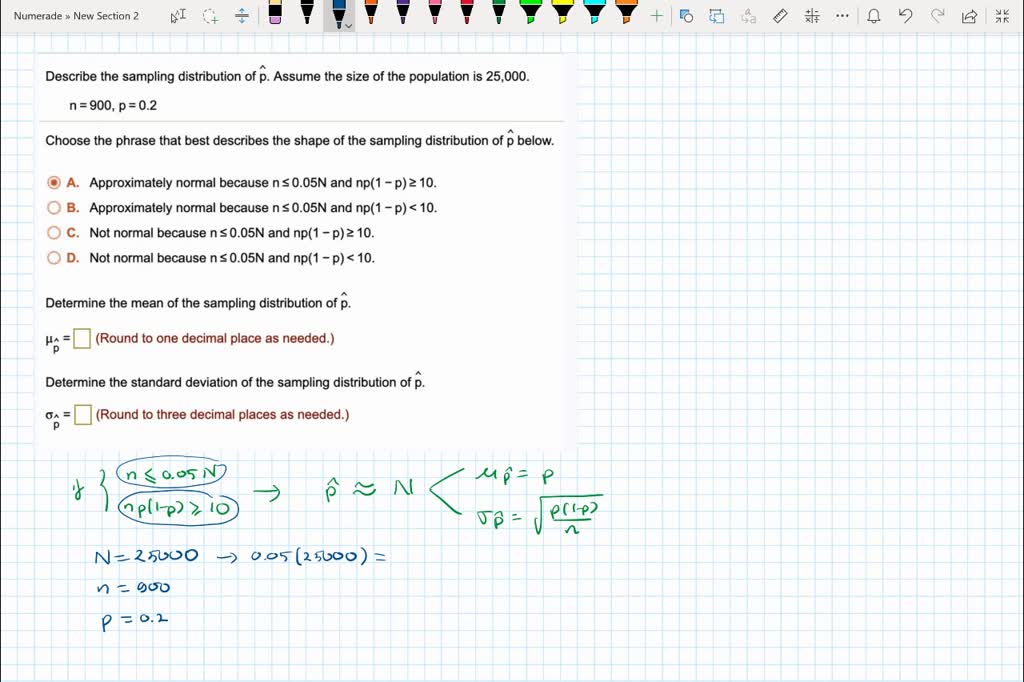 Numerade » New Section 2
Describe the sampling distribution of p̂. Assume the size of the population is 25,000.
n = 900, p = 0.2
Choose the phrase that best describes the shape of the sampling distribution of p̂ below.
A. Approximately normal because n ≤ 0.05N and np(1 − p) ≥ 10.
B. Approximately normal because n ≤ 0.05N and np(1 − p) < 10.
C. Not normal because n ≤ 0.05N and np(1 − p) ≥ 10.
D. Not normal because n ≤ 0.05N and np(1 − p) < 10.
Determine the mean of the sampling distribution of p̂.
μp̂ = (Round to one decimal place as needed.)
Determine the standard deviation of the sampling distribution of p̂.
σp̂ = (Round to three decimal places as needed.)
if { n ≤ 0.05 N
np(1-p) ≥ 10 → p̂ ≈ N
μp̂ = p
σp̂ = √(p(1-p)/n)
N = 25000 → 0.05 (25000) =
n = 900
p = 0.2